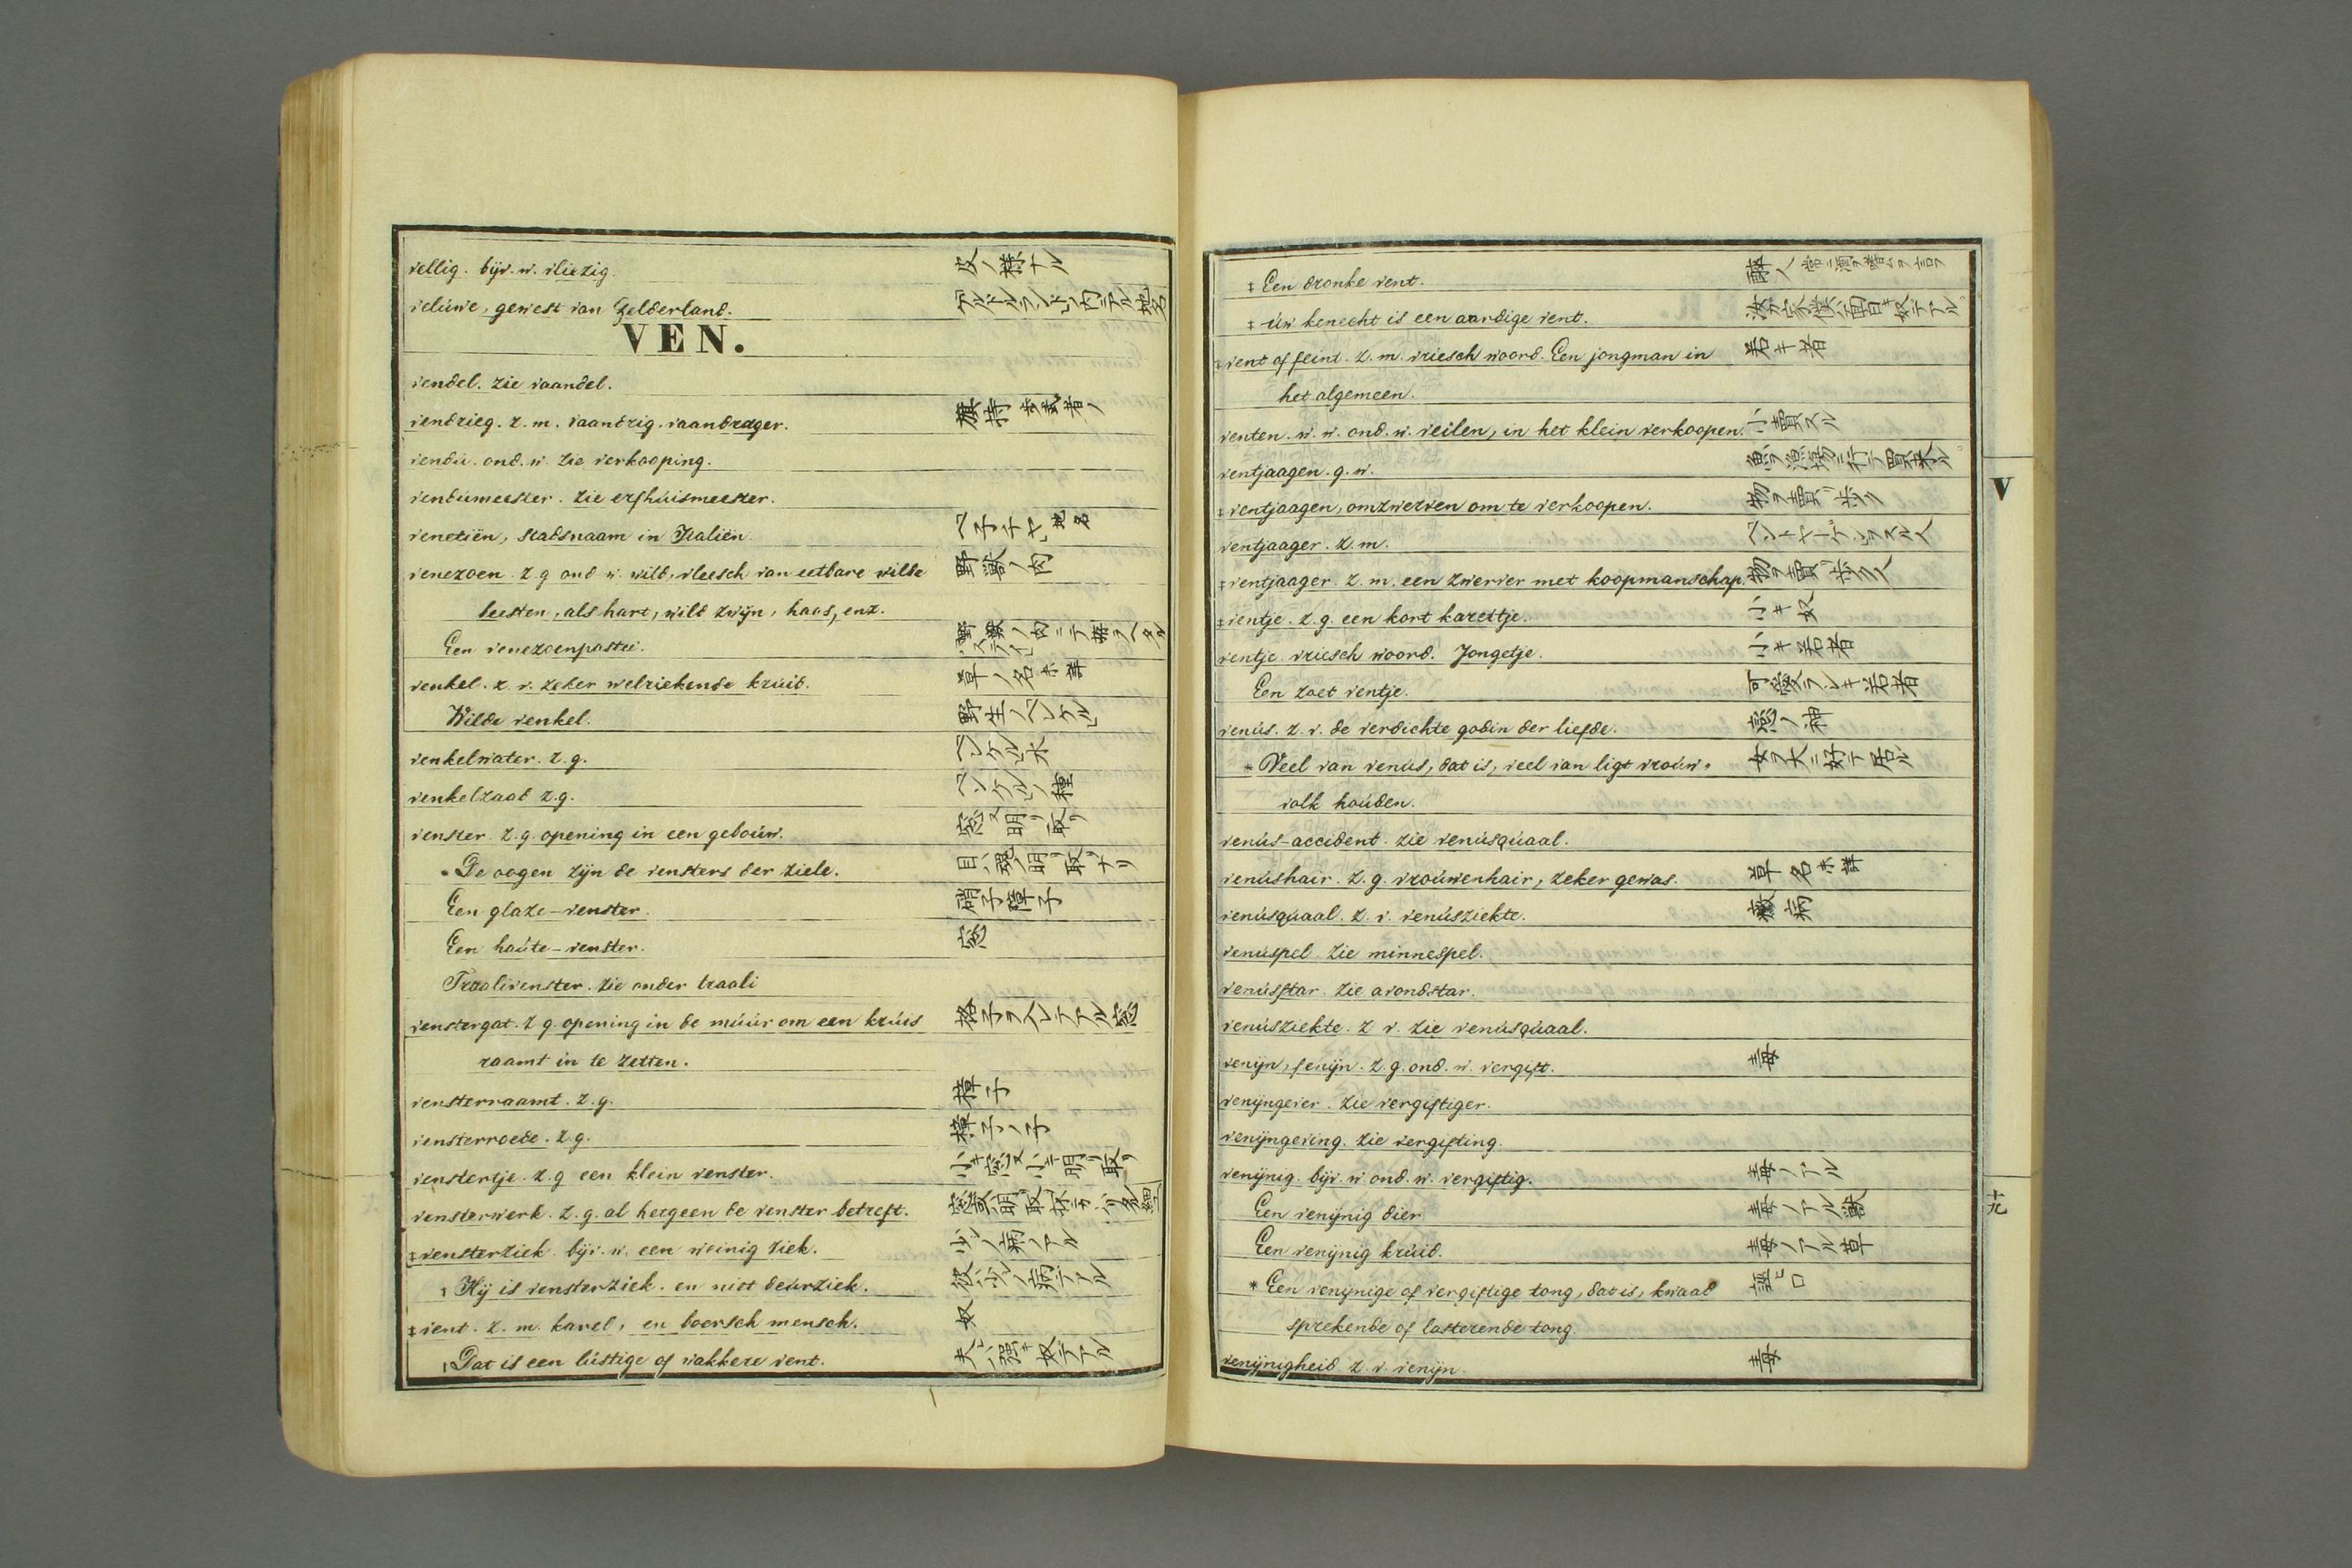 vellig. bijv. w. vliezig. 皮ノ様ナル
velúwe, gewest van Gelderland. ゲルドルランド内ニアル地名
VEN.
vendel. zie vaandel.
vendrieg. z. m. vaandrig. vaandrager. 旗持 歩武者ノ
vendú. oud. w. zie verkooping.
vendúmeester. zie erfhúismeester.
venetiën, stadsnaam in Italiën. 地名
venezoen. z. g. oud w. wild, vleesch van eetbare wilde 野獣ノ肉
beesten, als hart, wild zwijn, haas, enz.
Een venezoenpastei.
venkel. z. v. zeker welriekende krúid. 草ノ名未詳
Wilde venkel. 野生ノベンケル
venkelwater. z. g. ベンケル水
venkelzaad z. g. ベンケルノ種
venster. z. g. opening in een geboúw. 窓又明リ取リ
* De oogen zijn de vensters der ziele. 目ハ魂ノ明リ取ナリ
Een glaze-venster. 硝子障子
Een hoúte-venster. 窓
Traalivenster. zie onder traali
venstergat. z. g. opening in de múúr om een krúis 格子ヲ入レテアル窓
raamt in te zetten.
vensterraamt. z. g. 樟子
vensterroede. z. g. 樟子ノ子
venstertje. z. g een klein venster. 小キ窓又小キ明リ取リ
vensterwerk. z. g. al hetgeen de venster betreft.
‡vensterziek. bijv. w. een weinig ziek. 少シ病ノアル
Hij is vensterziek. en niet deúrziek. 彼ハ少シ病テアル
‡vent. z. m. karel, en boersch mensch. 奴
Dat is een lústige of wakkere vent. 夫ハ強キ奴テアル
‡ Een dronke vent. 酔人 常ニ酒ヲ嗜ムヲ言フ
‡ úw knecht is een aardige vent. 汝ガ家僕ハ面白キ奴テアル
‡vent of feint. z. m. vriesch woord. Een jongman in 若キ者
het algemeen.
venten. w. w. oud. w. veilen, in het klein verkoopen. 小賣スル
ventjaagen. g. w. 魚ヲ漁場ニ行テ買来ル
‡ventjaagen, omzwerven om te verkoopen. 物ヲ賣リ歩ク
ventjaager. z. m. ベントヤーゲンヲスル人
‡ventjaager. z. m. een zwerver met koopmanschap. 物ヲ賣リ歩ク人
‡ventje. z. g. een kort kareltje. 小キ奴
ventje. vriesch woord. Jongetje. 小キ若者
Een zoet ventje. 可愛ラシキ若者
venús. z. v. de verdichte godin der liefde. 恋ノ神
* Veel van venús, dat is, veel van ligt vroúw- 女ヲ大ニ好テ居ル
volk hoúden.
venús-accident. zie venúsqúaal.
venúshair. z. g. vroúwenhair, zeker gewas. 草名未詳
venúsqúaal. z. v. venúsziekte. 黴病
venúspel. zie minnespel.
venússtar. zie avondstar.
venúsziekte. z v. zie venúsqúaal.
venijn, fenijn. z. g. oud. w. vergift. 毒
venijngever. zie vergiftiger.
venijngeving. zie vergifting.
venijnig. bijv. w oud. w. vergiftig. 毒ノアル
Een venijnig dier 毒ノアル獣
Een venijnig krúid. 毒ノアル草
* Een venijnige of vergiftige tong, dat is, kwaad
sprekende of lasterende tong.
venijnigheid. z. v. venijn. 毒
V
十九